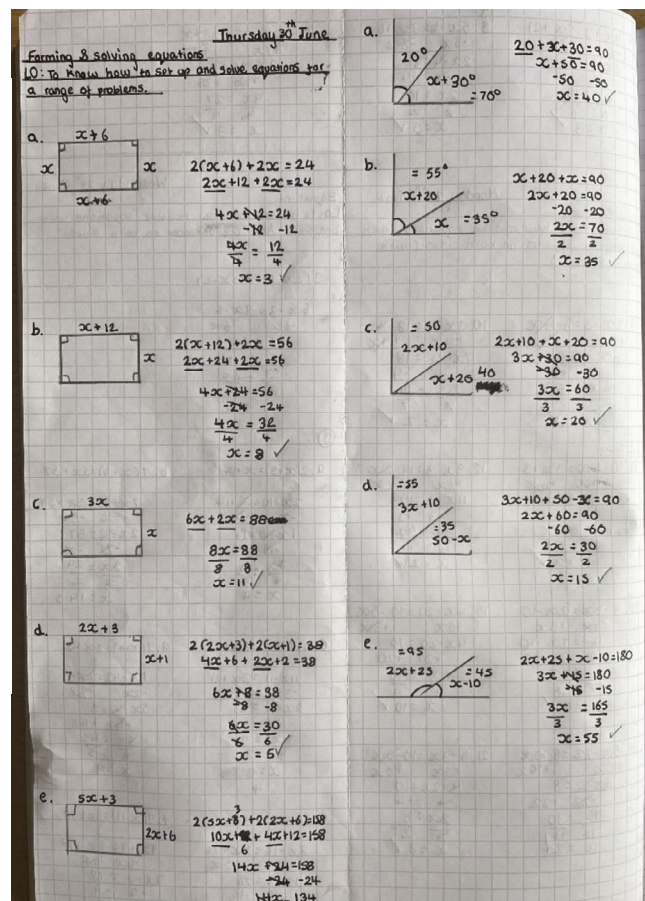 Thursday 30th June
Forming & solving equations
LO: To know how to set up and solve equations for
a range of problems.
a.
x+6
x
x
x+6
2(x+6) + 2x = 24
2x+12 + 2x = 24
4x+12 = 24
-12 -12
4x = 12
4 4
x = 3 ✓
b.
x+12
x
2(x+12) + 2x = 56
2x+24 + 2x = 56
4x+24 = 56
-24 -24
4x = 32
4 4
x = 8 ✓
c.
3x
x
6x + 2x = 88
8x = 88
8 8
x = 11 ✓
d.
2x+3
x+1
2(2x+3) + 2(x+1) = 38
4x+6 + 2x+2 = 38
6x+8 = 38
-8 -8
6x = 30
6 6
x = 5 ✓
e.
5x+3
2x+6
3
2(5x+8) + 2(2x+6) = 158
10x+ + 4x+12 = 158
6
14x +24 = 158
-24 -24
14x 134
a.
20°
x+30°
= 70°
20 + x + 30 = 90
x + 50 = 90
-50 -50
x = 40 ✓
b.
= 55°
x+20
x = 35°
x + 20 + x = 90
2x + 20 = 90
-20 -20
2x = 70
2 2
x = 35 ✓
c.
= 50
2x+10
x+20 40
2x+10 + x+20 = 90
3x +30 = 90
-30 -30
3x = 60
3 3
x = 20 ✓
d.
= 55
3x+10
= 35
50-x
3x+10 + 50 - x = 90
2x + 60 = 90
-60 -60
2x = 30
2 2
x = 15 ✓
e.
= 95
2x+25
= 45
x-10
2x+25 + x-10 = 180
3x +15 = 180
-15 -15
3x = 165
3 3
x = 55 ✓